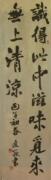 識得此中滋味覓來
無上清涼